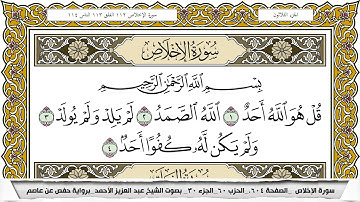 الجزء الثلاثون
سورة الإخلاص ١١٢ الفلق ١١٣ الناس ١١٤
سُورَةُ الإِخْلَاصِ
بِسْمِ اللَّهِ الرَّحْمَٰنِ الرَّحِيمِ
قُلْ هُوَ اللَّهُ أَحَدٌ ١ اللَّهُ الصَّمَدُ ٢ لَمْ يَلِدْ وَلَمْ يُولَدْ ٣
وَلَمْ يَكُن لَّهُ كُفُوًا أَحَدٌ ٤
سورة الإخلاص _ الصفحة ٦٠٤ _ الحزب ٦٠ _ الجزء ٣٠ _ بصوت الشيخ عبد العزيز الأحمد _ برواية حفص عن عاصم